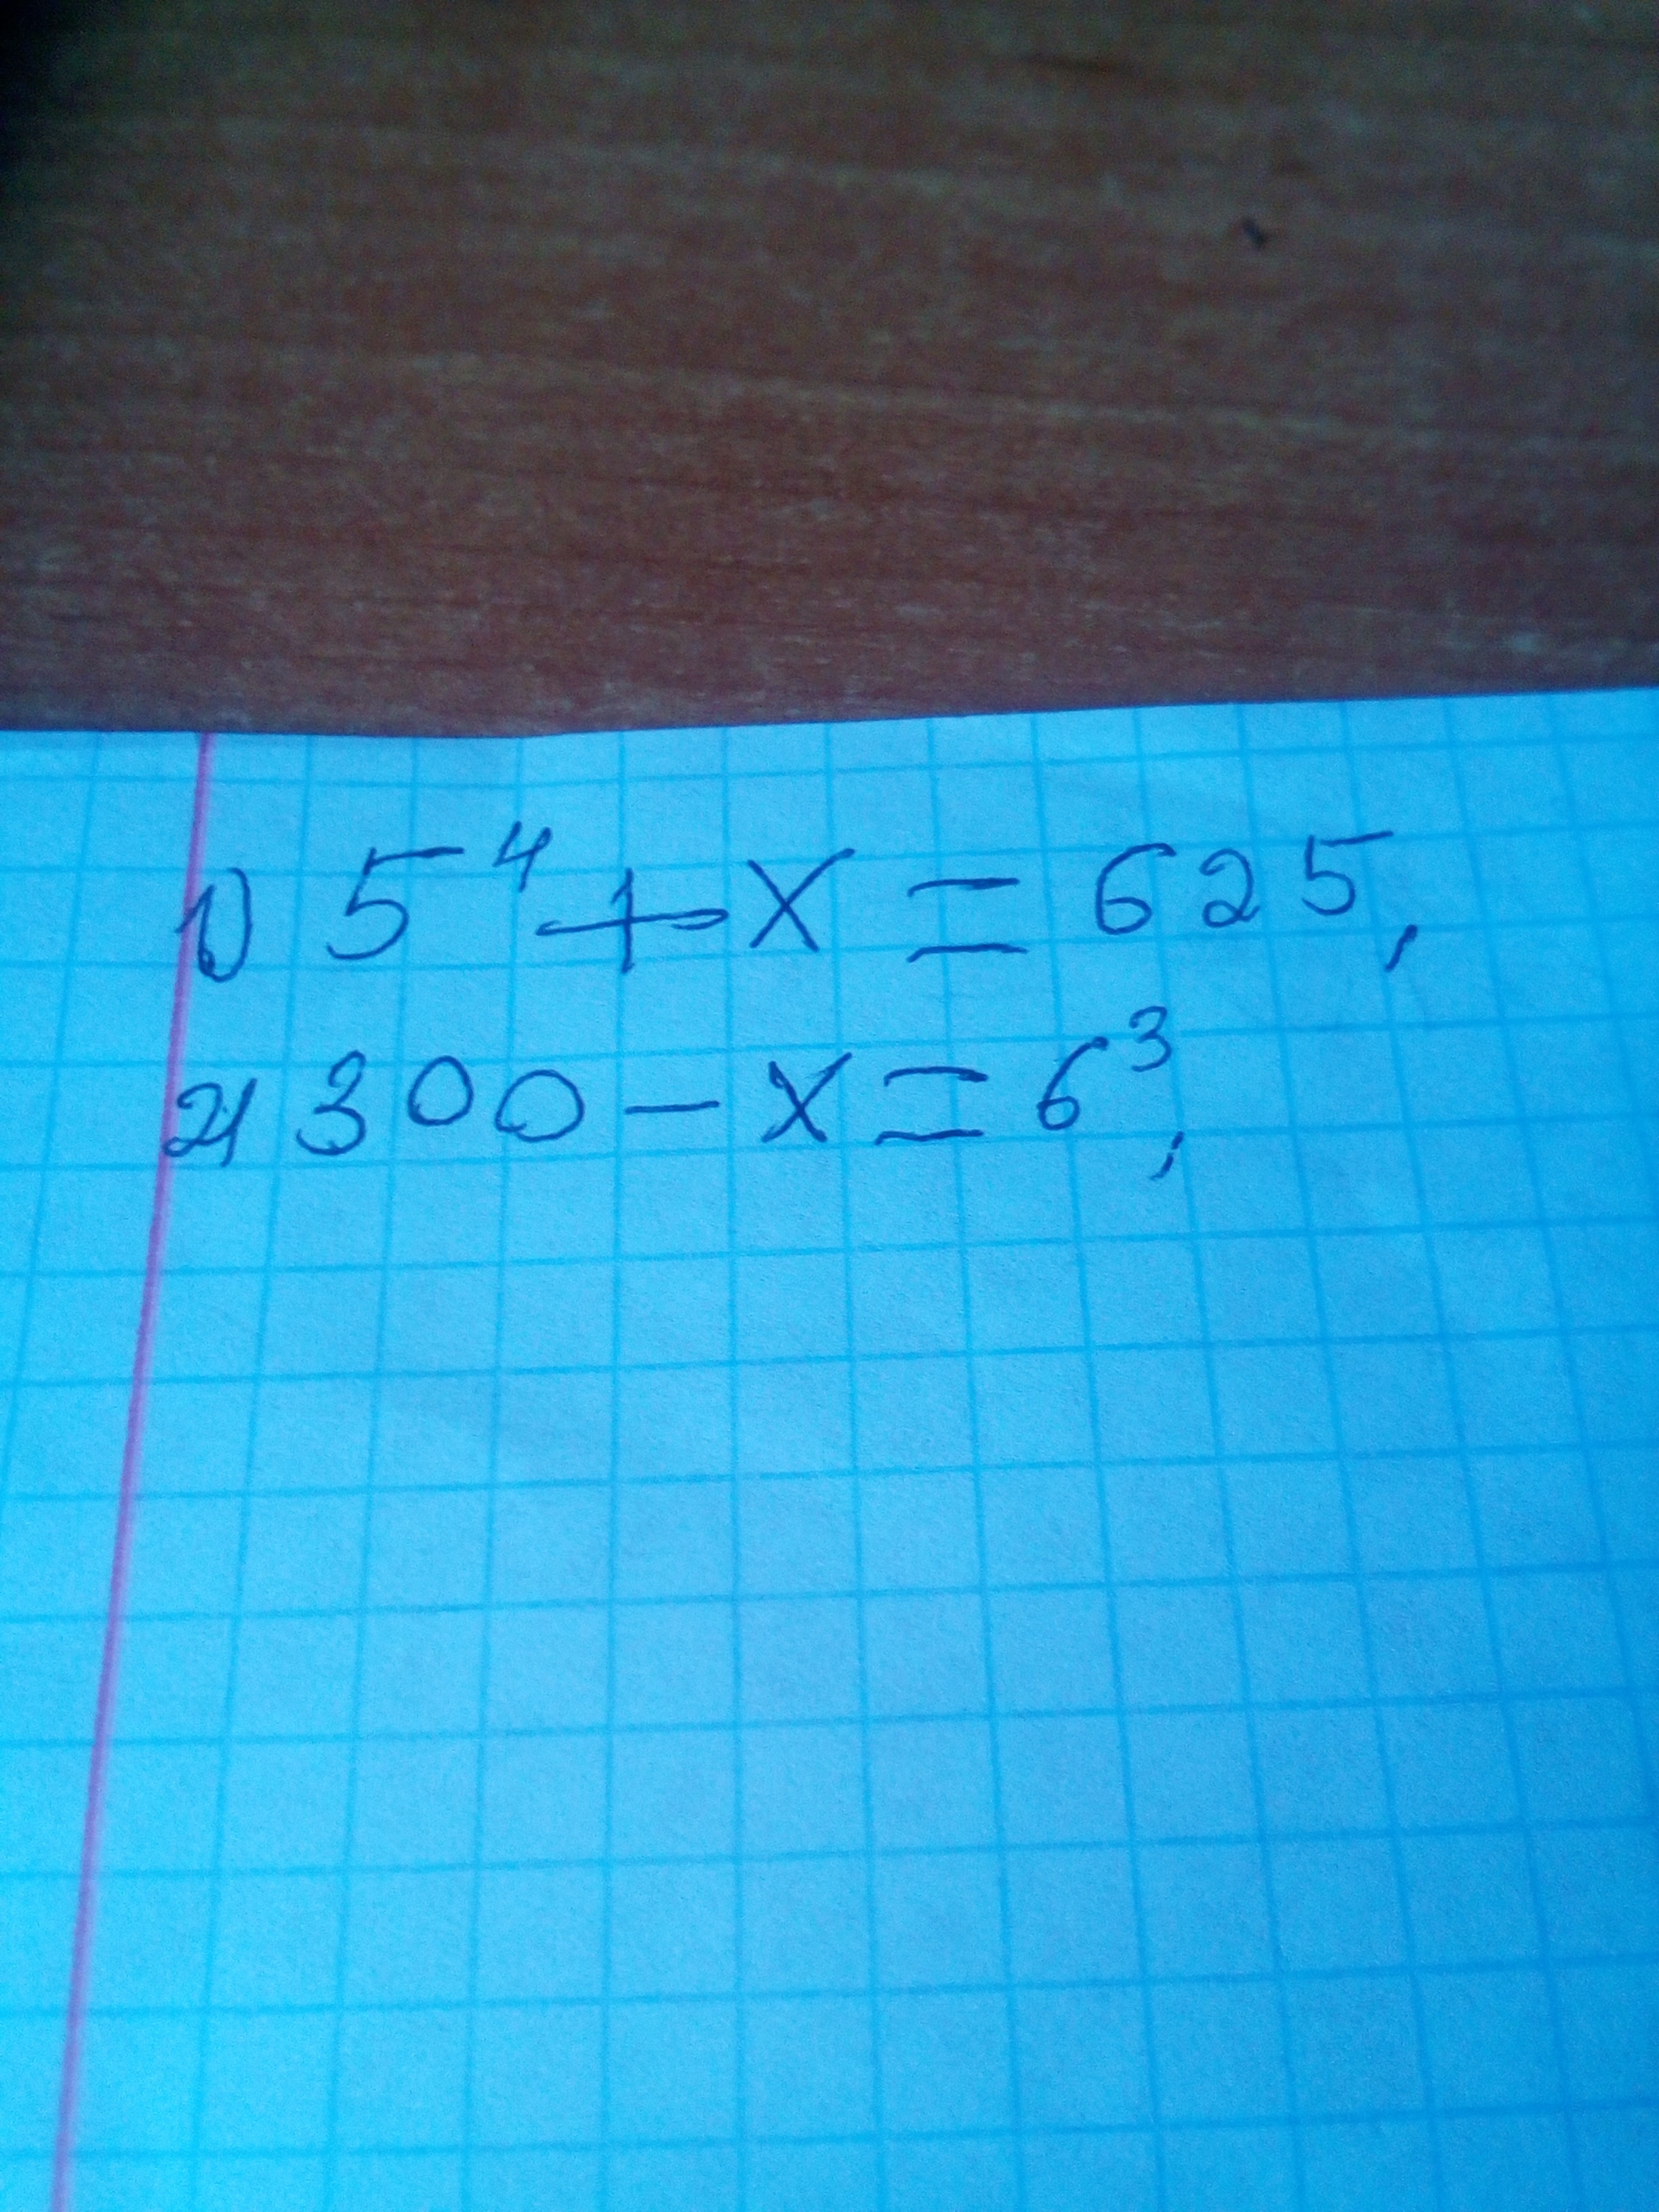 1) 5⁴ + x = 625,
2) 300 - x = 6³,